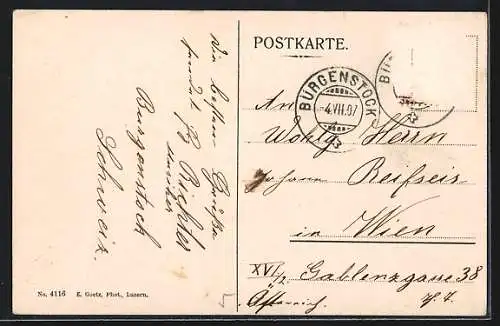 Die besten Grüße
sendet
Richter
Burgenstock
Schweiz.
No. 4116 E. Goetz, Phot., Luzern.
POSTKARTE.
BÜRGENSTOCK
-4.VII.07
BÜ
An
Wohlg. Herrn
Johann Reifseis
in Wien
XVI/2 Gablenzgasse 38
Österreich